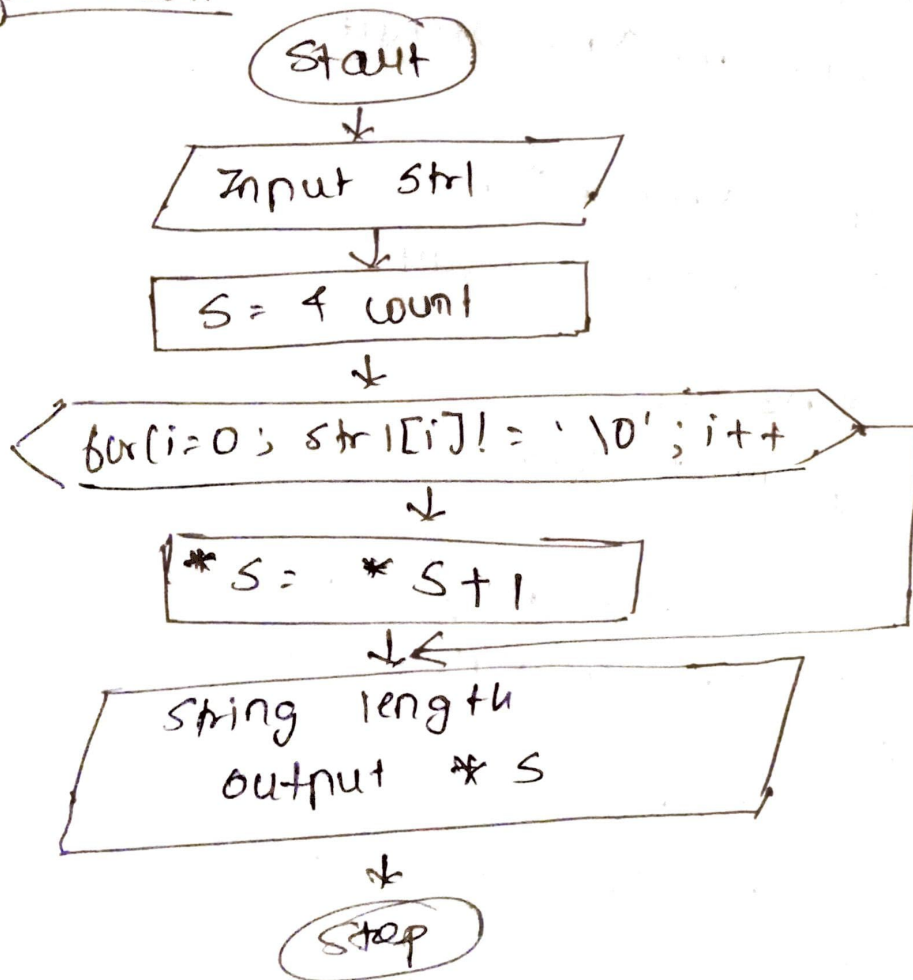 Start
Input Str1
S = & count
for(i=0; str1[i]!='\0'; i++
*S = *S+1
String length
output *S
Stop